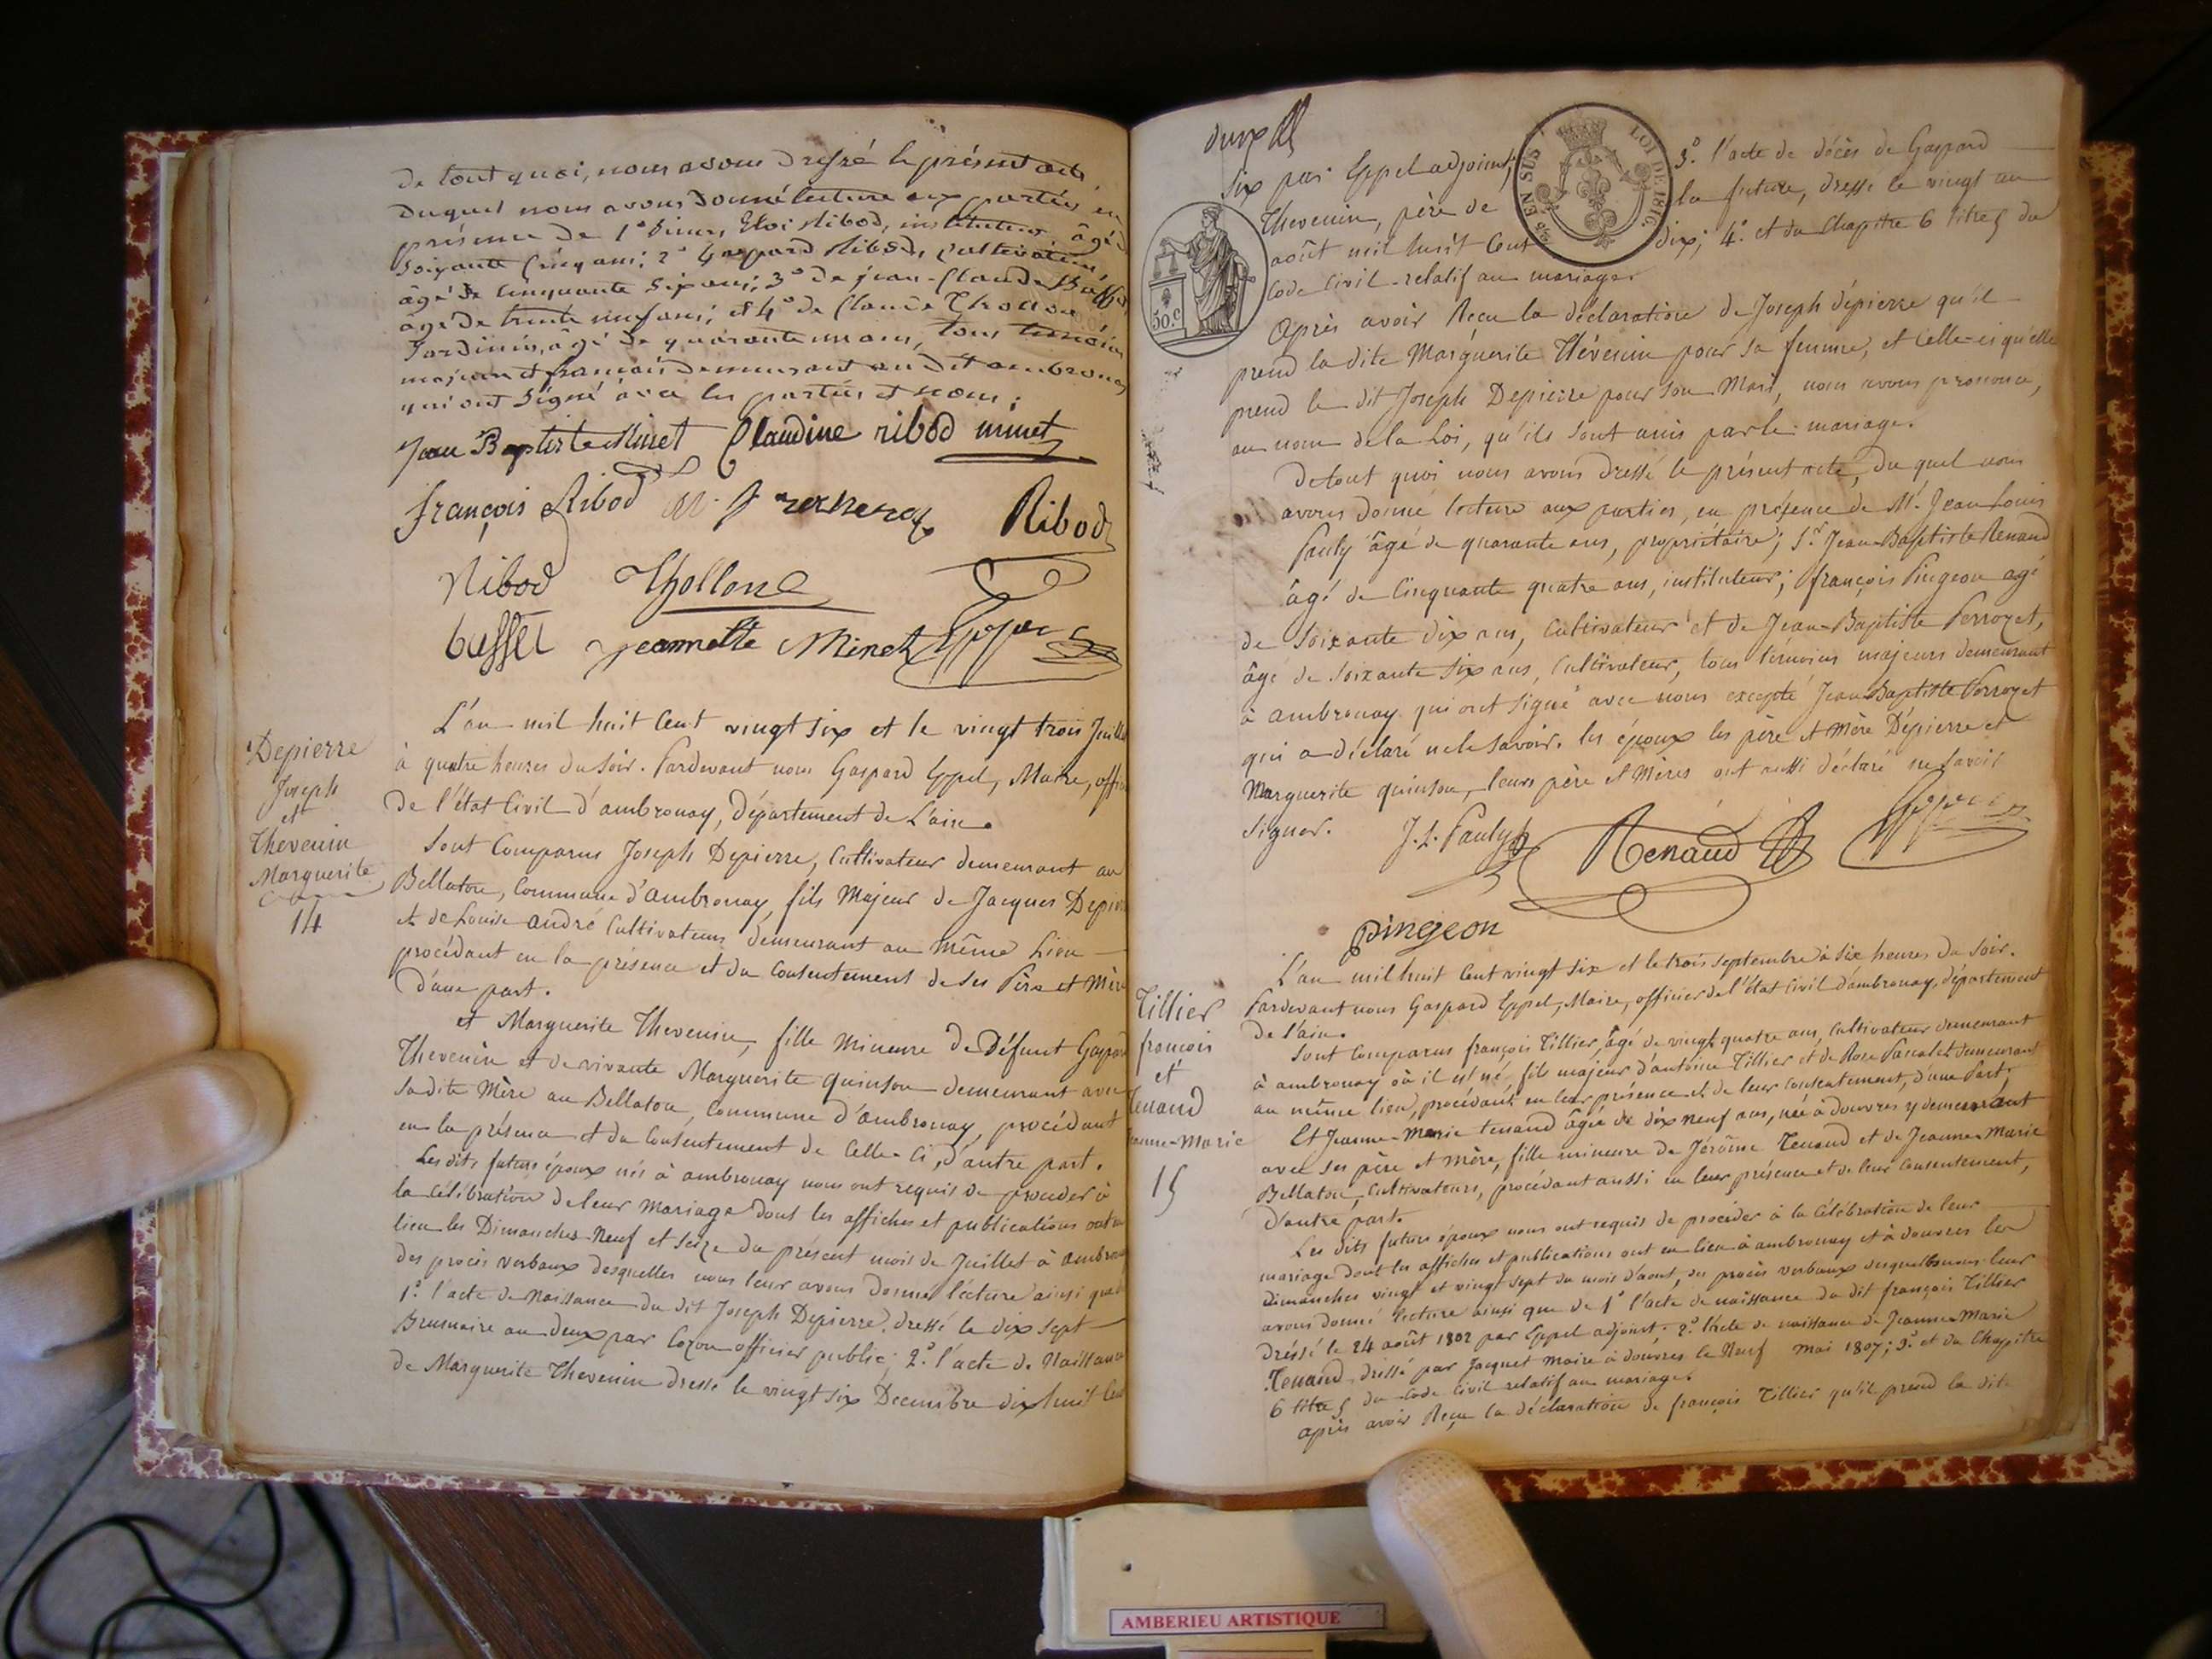 de tout quoi, nous avons dressé le présent acte,
duquel nous avons donné lecture aux parties en
présence de 1° Sieur Eloi Ribod, instituteur, âgé de
soixante cinq ans; 2° Gaspard Ribod, cultivateur,
âgé de cinquante six ans; 3° de jean-Claude Buffet,
âgé de trente neuf ans; et 4° de Claude Thollon
Jardinier, âgé de quarante un ans, tous témoins
majeurs et français demeurant au dit ambronay
qui ont signé avec les parties et nous;
Jean Baptiste Minet Claudine ribod minet
françois Ribod Ribod
Ribod Thollon
buffet jeannette Minet Eppel
L'an mil huit Cent vingt six et le vingt trois Juillet
à quatre heures du soir. Pardevant nous Gaspard Eppel, Maire, offi
de l'état Civil d'ambronay, Département de L'ain.
Depierre
Joseph
et
Thevenin
Marguerite
14
Sont Comparus Joseph Depierre, Cultivateur demeurant au
Bellaton, Commune d'ambronay, fils Majeur de Jacques Depier
et de Louise andré Cultivateurs demeurant au même Lieu
procédant en la présence et du Consentement de ses Père et Mère
d'une part.
et Marguerite Thevenin, fille Mineure de Défunt Gaspard
Thevenin et de vivante Marguerite Quinson demeurant avec
sadite Mère au Bellaton, Commune d'Ambronay, procédant
en la présence et du Consentement de Celle-Ci, d'autre part.
Les dits futurs époux nés à ambronay nous ont requis de procéder à
la Célébration de leur Mariage dont les affiches et publications ont eu
lieu les Dimanches Neuf et Seize du présent mois de Juillet à ambron
des procès verbaux desquelles nous leur avons donné lecture ainsi que de
1°. l'acte de Naissance du dit Joseph Depierre, dressé le dix sept
Brumaire an deux par Cozon officier public; 2°. l'acte de Naissance
de Marguerite Thevenin dressé le vingt six Decembre dix huit Cent
onze
Six par Eppel adjoint; 3°. l'acte de décès de Gaspard
Thevenin, père de la future, dressé le vingt un
août mil huit Cent dix; 4°. et du Chapitre 6 titre 5 du
Code Civil relatif au mariage.
EN SUS
LOI DE 1816
50.c
Après avoir Reçu la déclaration de Joseph dépierre qu'il
prend la dite Marguerite Thévenin pour sa femme, et celle-ci qu'elle
prend le dit Joseph Depierre pour son Mari, nous avons prononcé,
au nom de la Loi, qu'ils sont unis par le mariage.
De tout quoi nous avons dressé le présent acte, du quel nous
avons donné lecture aux parties, en présence de Mr. Jean Louis
Pauly âgé de quarante ans, propriétaire; Sr. Jean-Baptiste Renaud
âgé de Cinquante quatre ans, instituteur; françois Pingeon agé
de Soixante dix ans, Cultivateur et de Jean-Baptiste Perroget,
âgé de Soixante Six ans, Cultivateur, tous témoins majeurs demeurant
à ambronay qui ont signé avec nous excepté Jean Baptiste Perroget
qui a déclaré ne le savoir. les époux les père et Mère Dépierre et
Marguerite quinson, leurs père et Mères ont aussi déclaré ne savoir
signer. J. L. Pauly Renaud Eppel
pingeon
L'an mil huit Cent vingt six et le trois septembre à six heures du soir.
Pardevant nous Gaspard Eppel, Maire, officier de l'état Civil d'ambronay, département
de l'ain.
Tillier
françois
et
Tenand
Jeanne-Marie
15
Sont Comparus françois Tillier, âgé de vingt quatre ans, Cultivateur demeurant
à ambronay où il est né, fils majeur d'antoine Tillier et de Rose Pascalet demeurant
au même lieu, procédant en leur présence et de leur Consentement, d'une Part;
Et Jeanne-Marie tenand âgée de dix neuf ans, née à douvres y demeurant
avec ses père et mère, fille mineure de Jérôme Tenand et de Jeanne Marie
Bellaton, Cultivateurs, procédant aussi en leur présence et de leur Consentement,
d'autre part.
Les dits futurs époux nous ont requis de procéder à la Célébration de leur
mariage dont les affiches et publications ont eu lieu à ambronay et à douvres les
dimanches vingt et vingt sept du mois d'aout, des procès verbaux desquelles nous leur
avons donné lecture ainsi que de 1° l'acte de naissance du dit françois Tillier
dréssé le 24 août 1802 par Eppel adjoint; 2°. l'acte de naissance de Jeanne Marie
Tenand, dréssé par Jacquet maire à douvres le Neuf mai 1807; 3°. et du Chapitre
6 titre 5 du Code Civil relatif au mariage.
après avoir Reçu la déclaration de françois Tillier qu'il prend la dite
AMBERIEU ARTISTIQUE